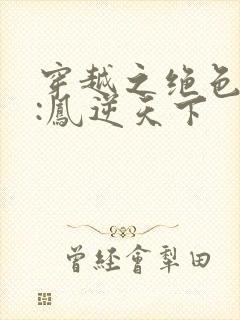 穿越之绝色
:鳳逆天下
曾經會犁田